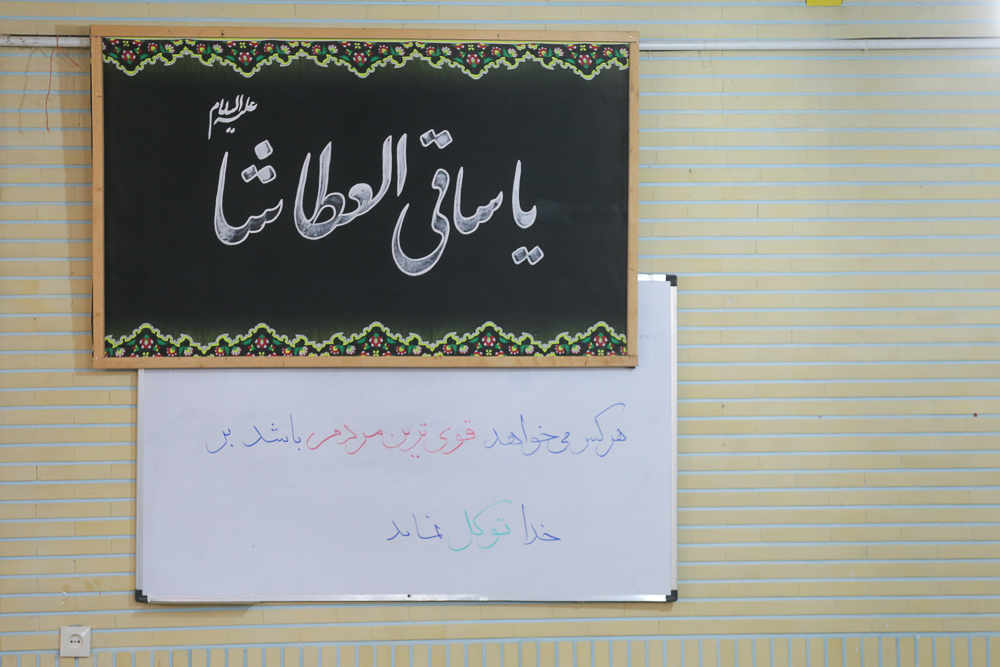 علیه السلام
یا ساقی العطاشا
هر کس می‌خواهد قوی ترین مردم باشد بر
خدا توکل نماید